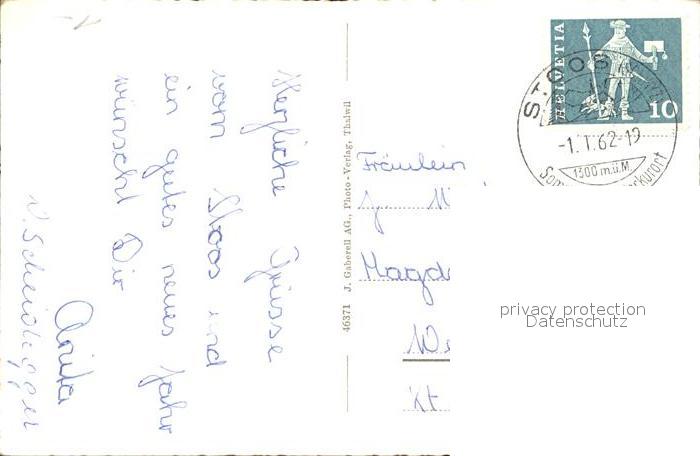 Herzliche Grüsse
vom Stoos und
ein gutes neues Jahr
wünscht Dir
Anita
V. Scheidegger
46371 J. Gaberell AG., Photo-Verlag, Thalwil
HELVETIA
10
STOOS
-1.1.62-19
1300 m.ü.M.
Fräulein
J. M
Magd
We
Kt
privacy protection
Datenschutz